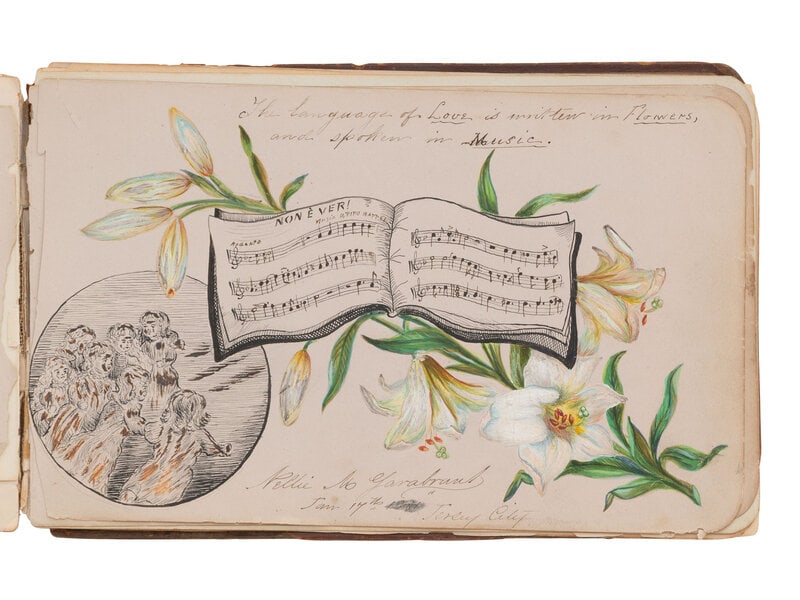 The language of Love is written in Flowers,
and spoken in Music.
NON È VER!
Music by Tito Mattei
Andante
Nellie M Garabrant
Jan 17th
Jersey City